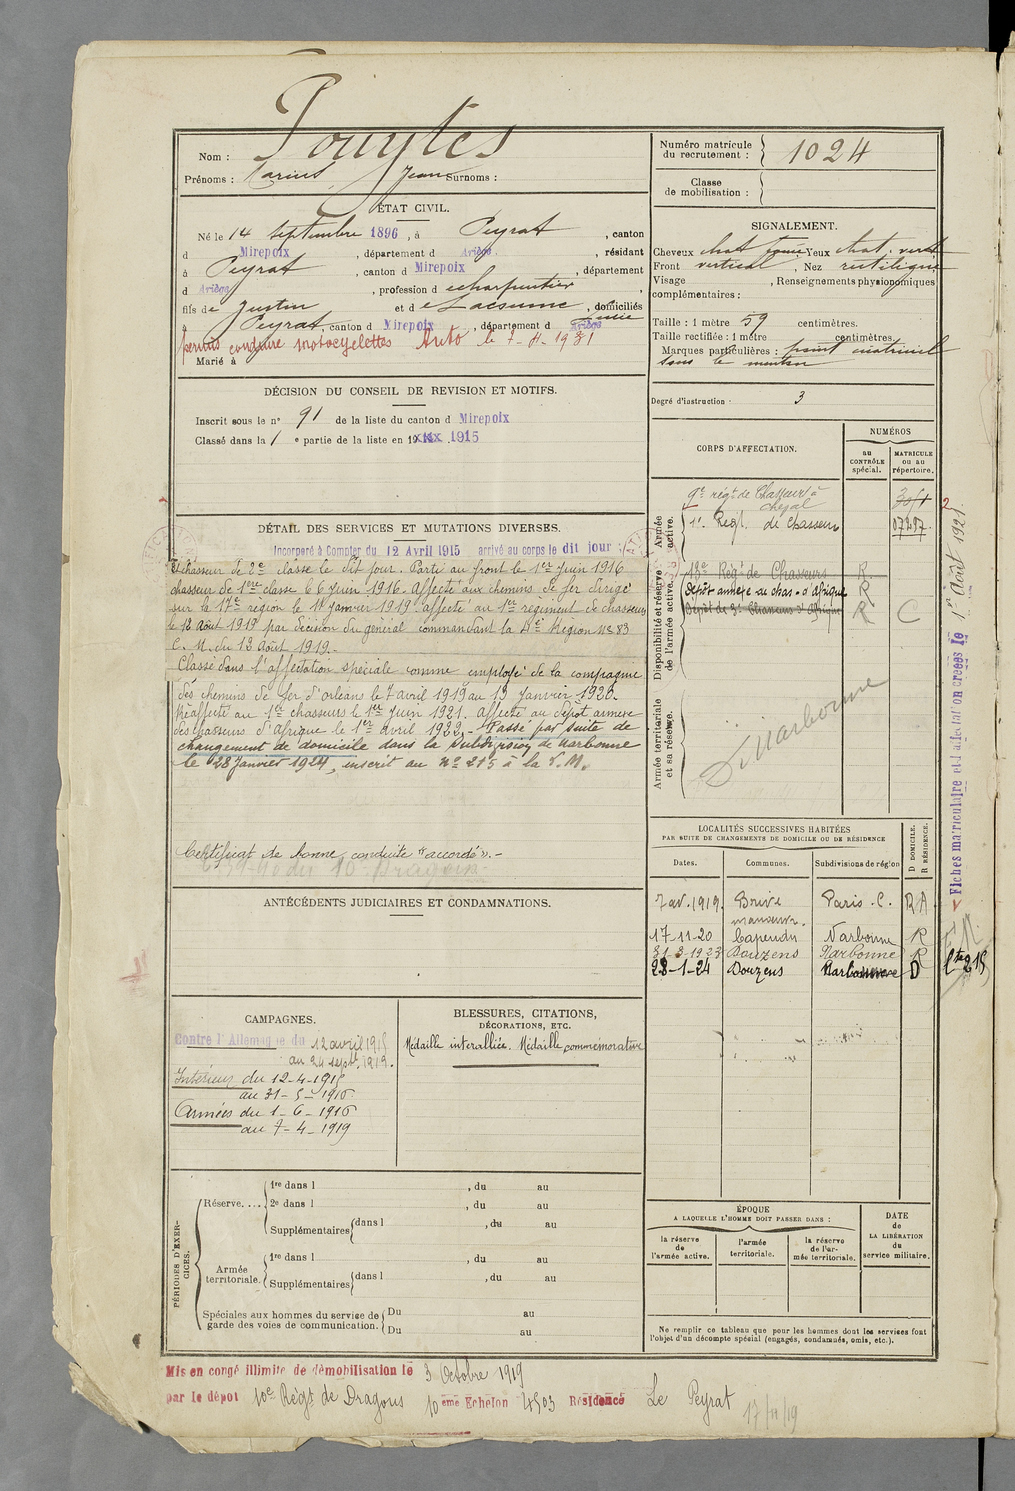 Nom : Pouytes
Prénoms : Marius Jean Surnoms :
Numéro matricule du recrutement : 1024
Classe de mobilisation :
ÉTAT CIVIL.
Né le 14 septembre 1896, à Peyrat, canton
d Mirepoix, département d Ariège, résidant
à Peyrat, canton d Mirepoix, département
d Ariège, profession de charpentier
fils de Justin et de Lacsunne Julie, domiciliés
à Peyrat, canton d Mirepoix, département d Ariège
permis conduire motocyclettes Auto le 7-4-1931
Marié à
SIGNALEMENT.
Cheveux chat foncé Yeux chat. vert
Front vertical, Nez rectiligne
Visage , Renseignements physionomiques
complémentaires :
Taille : 1 mètre 59 centimètres.
Taille rectifiée : 1 mètre centimètres.
Marques particulières :
sous le menton
Degré d'instruction : 3
DÉCISION DU CONSEIL DE REVISION ET MOTIFS.
Inscrit sous le n° 91 de la liste du canton d Mirepoix
Classé dans la 1e partie de la liste en 19 1915
DÉTAIL DES SERVICES ET MUTATIONS DIVERSES.
Incorporé à Compter du 12 Avril 1915 arrivé au corps le dit jour
et chasseur de 2e classe le dit jour. Parti au front le 1er Juin 1916
chasseur de 1ère classe le 6 Juin 1916. Affecté aux chemins de fer dirigé
sur la 17e région le 18 Janvier 1919 affecté au 1er régiment de chasseurs
le 12 Août 1919 par décision du général commandant la 4e Région n° 83
C. M. du 12 Août 1919.
Classé dans l'affectation spéciale comme employé de la compagnie
des chemins de fer d'orléans le 7 avril 1919 au 13 Janvier 1920.
Réaffecté au 1er chasseurs le 1er Juin 1921. Affecté au Dépôt annexe
des chasseurs d'Afrique le 1er avril 1922. - Passé par suite de
changement de domicile dans la subdivision de Narbonne
le 28 Janvier 1924, inscrit au n° 215 à la L.M.
Certificat de bonne conduite "accordé". -
CORPS D'AFFECTATION.
NUMÉROS
au CONTRÔLE spécial.
MATRICULE ou au répertoire.
Armée active.
9e régt de Chasseurs à cheval
1er Regt. de Chasseurs 07297
Disponibilité et réserve de l'armée active.
18e Regt de Chasseurs R
Dépôt annexe de chas. d'Afrique R
Dépôt de 3e Chasseurs d'Afrique R C
Armée territoriale et sa réserve.
D Narbonne
Fiches matriculaire et d'affectation créées le 1er Août 1921
LOCALITÉS SUCCESSIVES HABITÉES
PAR SUITE DE CHANGEMENTS DE DOMICILE OU DE RÉSIDENCE
Dates. Communes. Subdivisions de région D DOMICILE. R RÉSIDENCE.
7 av. 1919. Brive Paris - C. RA
17-11-20 Capendu Narbonne R
31-3-1923 Douzens Narbonne R
28-1-24 Douzens Narbonne D
ANTÉCÉDENTS JUDICIAIRES ET CONDAMNATIONS.
CAMPAGNES.
Contre l'Allemagne du 12 avril 1915
au 24 sept. 1919.
Intérieur du 12-4-1915
au 31-5-1916
Armées du 1-6-1916
au 7-4-1919
BLESSURES, CITATIONS,
DÉCORATIONS, ETC.
Médaille interalliée. Médaille commémorative
PÉRIODES D'EXERCICES.
Réserve....
1re dans l , du au
2e dans l , du au
Supplémentaires dans l , du au
Armée territoriale.
1re dans l , du au
Supplémentaires dans l , du au
Spéciales aux hommes du service de garde des voies de communication.
Du au
Du au
ÉPOQUE
A LAQUELLE L'HOMME DOIT PASSER DANS :
la réserve de l'armée active.
l'armée territoriale.
la réserve de l'armée territoriale.
DATE de LA LIBÉRATION du service militaire.
Ne remplir ce tableau que pour les hommes dont les services font
l'objet d'un décompte spécial (engagés, condamnés, omis, etc.).
Mis en congé illimité de démobilisation le 3 Octobre 1919
par le dépôt 10e Régt de Dragons 10 ème Echelon 4503 Résidence Le Peyrat
17/11/19